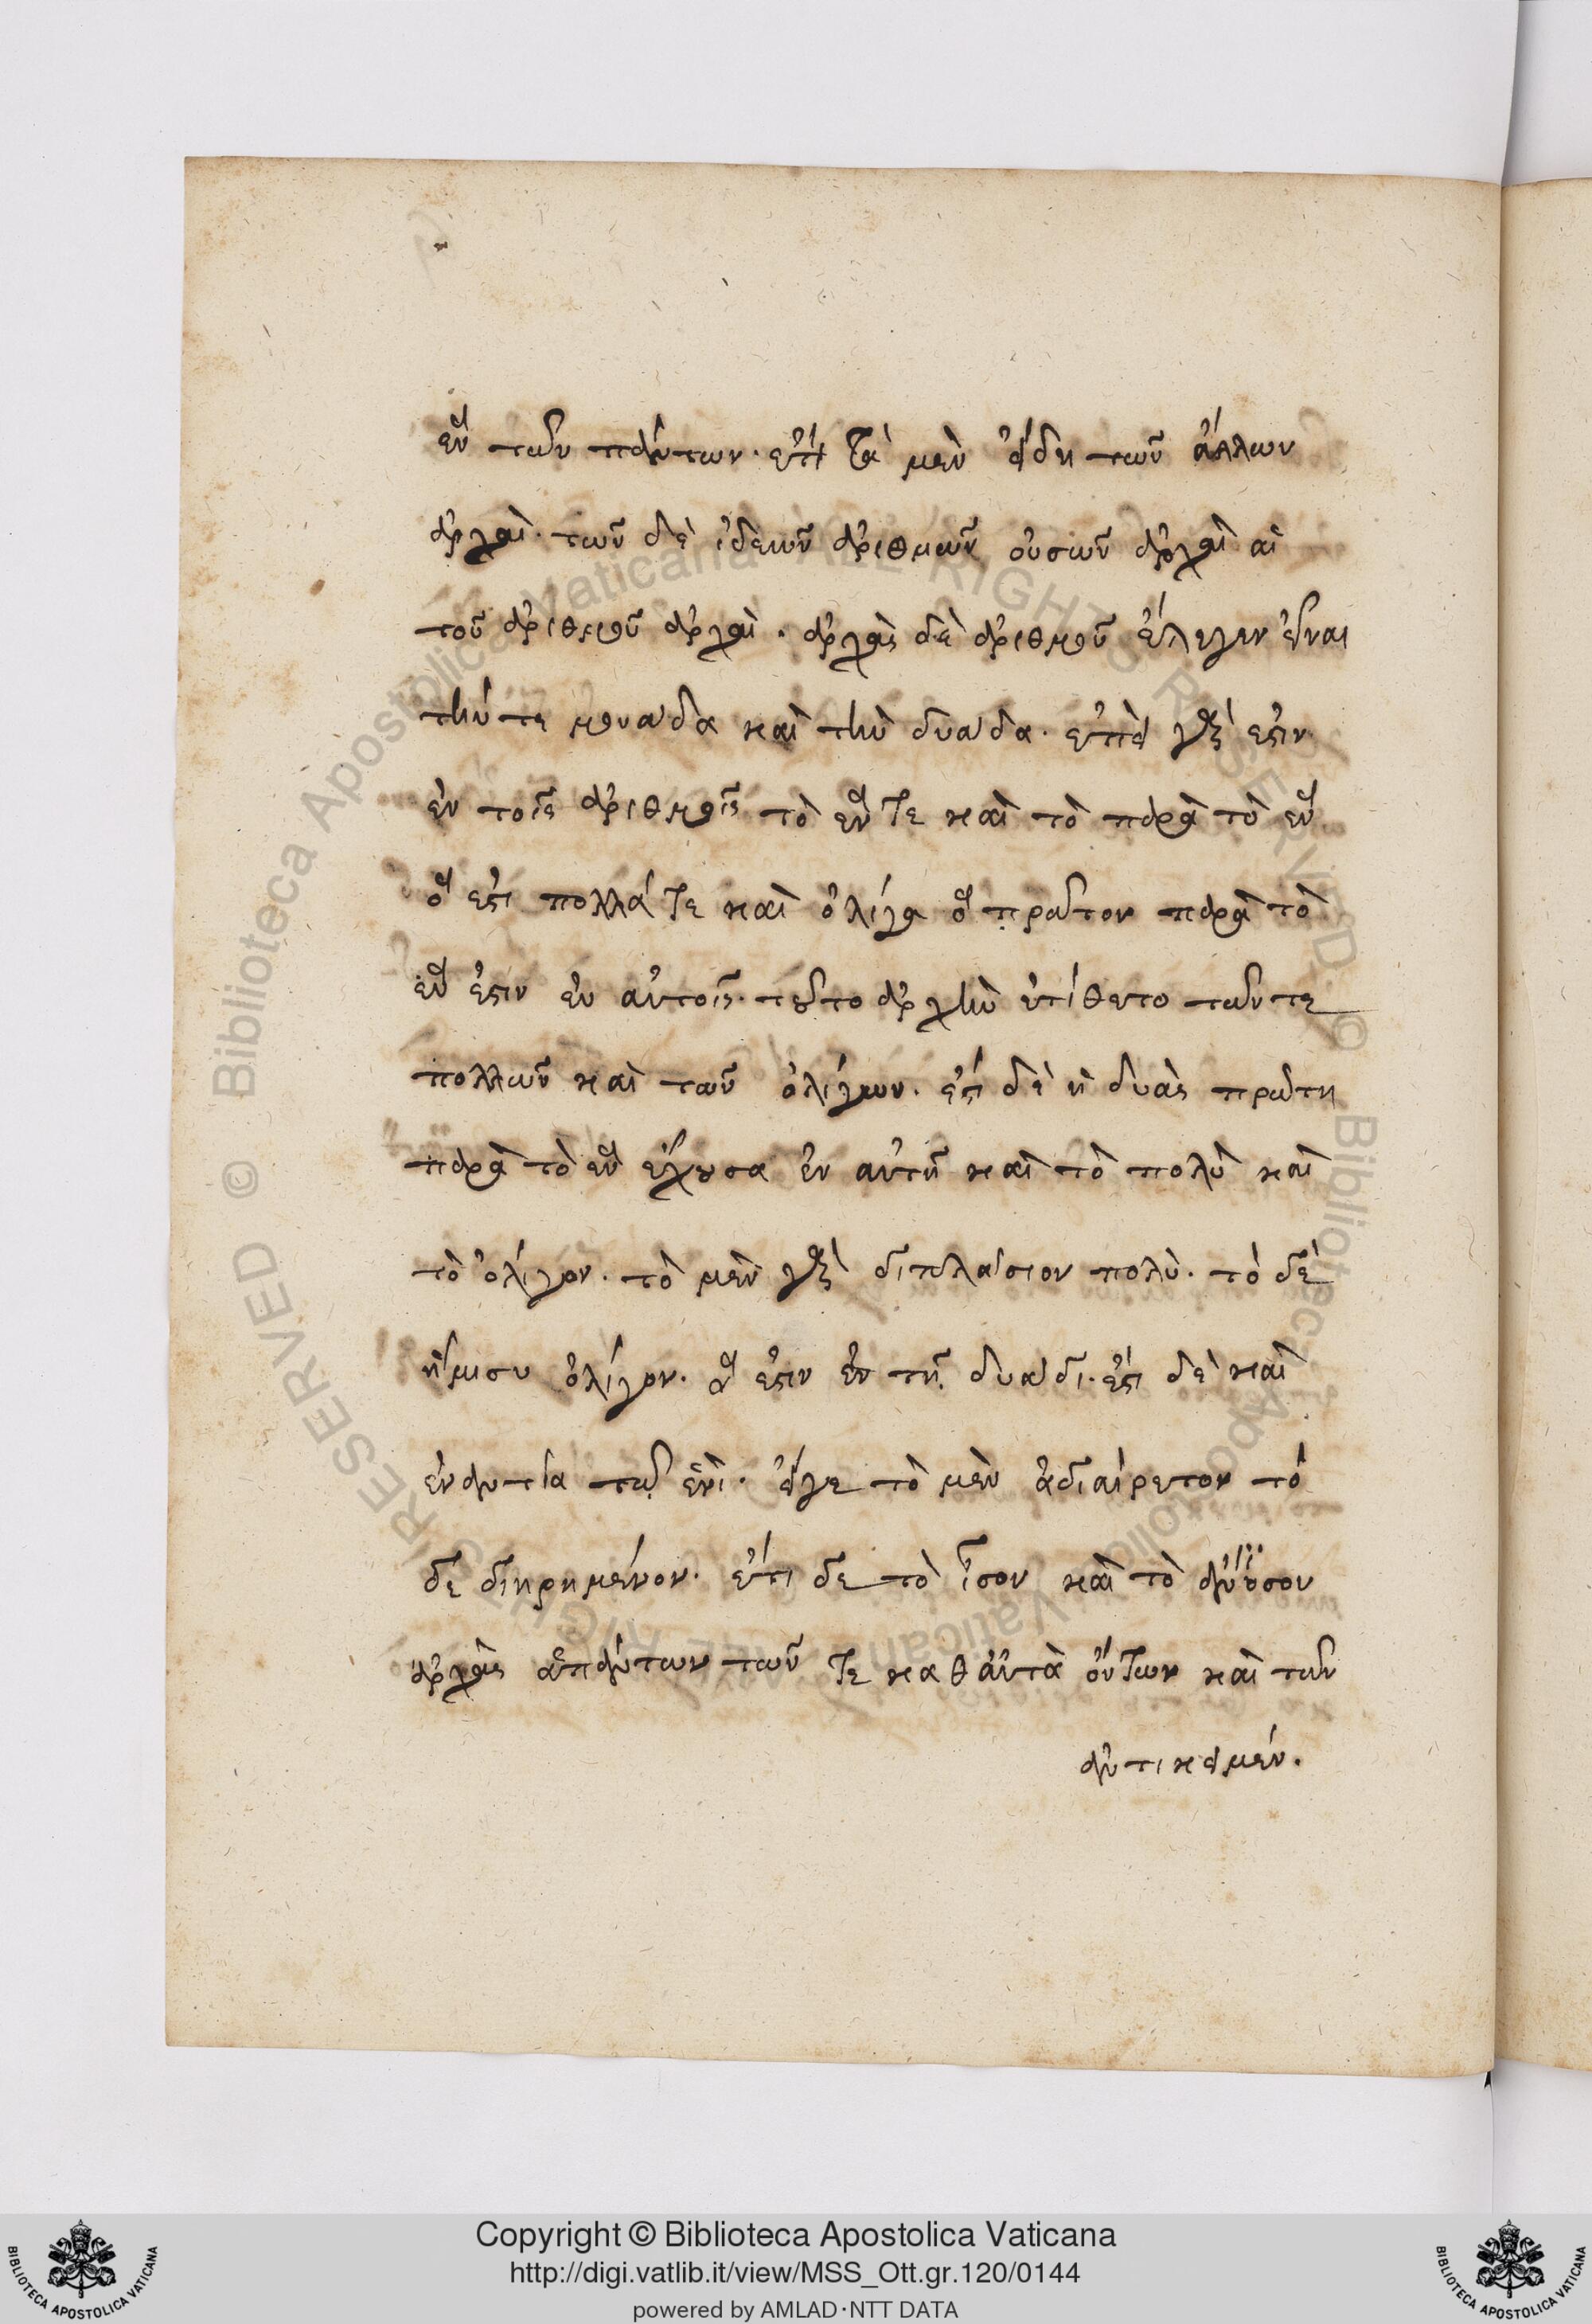 ἓν τῶν πάντων. ἔτι τὰ μὲν εἴδη τῶν ἄλλων
ἀρχαὶ. τῶν δὲ ἰδεῶν ἀριθμῶν οὐσῶν ἀρχαὶ αἱ
τοῦ ἀριθμοῦ ἀρχαὶ. ἀρχὰς δὲ ἀριθμοῦ ἔλεγεν εἶναι
τήν τε μονάδα καὶ τὴν δυάδα. ἐπεὶ γὰρ ἐστιν
ἐν τοῖς ἀριθμοῖς τὸ ἕν τε καὶ τὸ παρὰ τὸ ἓν
ὅ ἐστι πολλά τε καὶ ὀλίγα ὃ πρῶτον παρὰ τὸ
ἕν ἐστιν ἐν αὐτοῖς. τοῦτο ἀρχὴν ἐτίθετο τῶν τε
πολλῶν καὶ τῶν ὀλίγων. ἔστι δὲ ἡ δυὰς πρώτη
παρὰ τὸ ἓν ἔχουσα ἐν αὐτῇ καὶ τὸ πολὺ καὶ
τὸ ὀλίγον. τὸ μὲν γὰρ διπλάσιον πολὺ. τὸ δὲ
ἥμισυ ὀλίγον. ἅ ἐστιν ἐν τῇ δυάδι. ἔστι δὲ καὶ
ἐναντία τῷ ἑνὶ. εἴγε τὸ μὲν ἀδιαίρετον τὸ
δε διηρημένον. ἔτι δε τὸ ἴσον καὶ τὸ ἄνϊσον
ἀρχὰς ἁπάντων τῶν τε καθ αὑτὰ ὄντων καὶ τῶν
ἀντικειμέν.
Copyright © Biblioteca Apostolica Vaticana
http://digi.vatlib.it/view/MSS_Ott.gr.120/0144
powered by AMLAD·NTT DATA